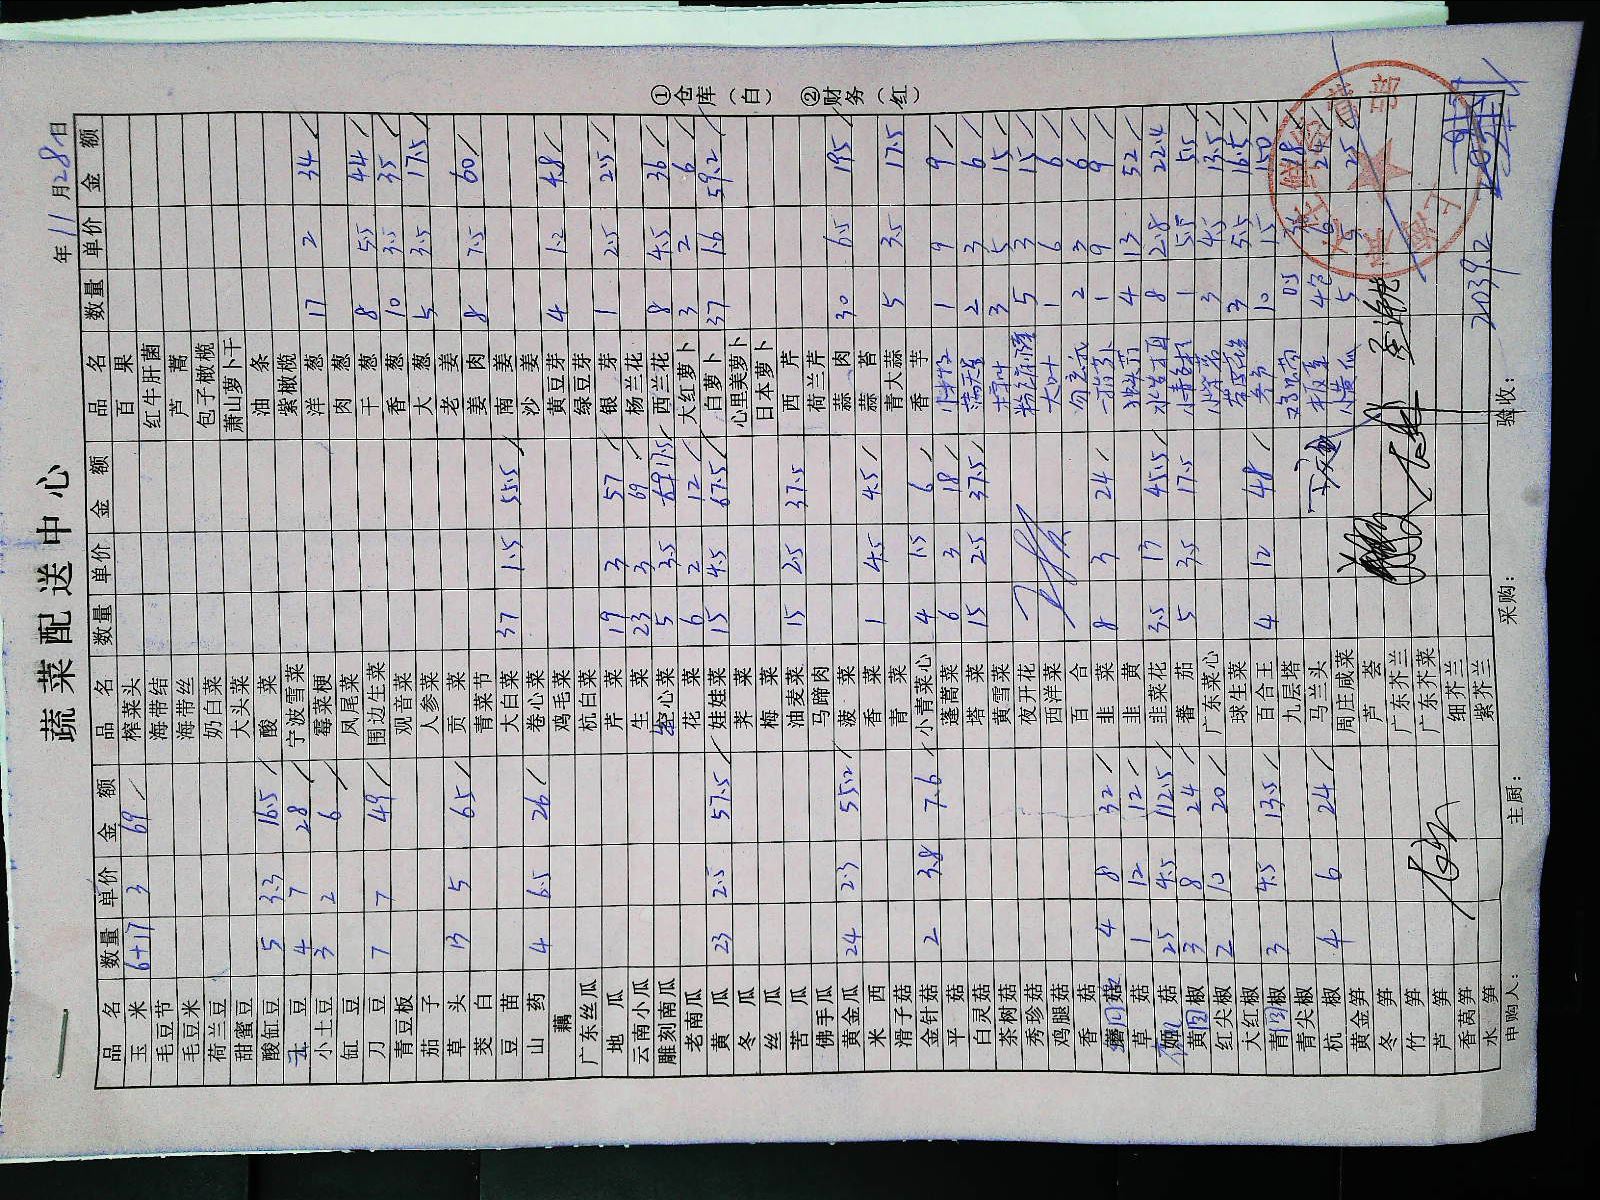 蔬菜配送中心
年 11 月 28 日
品名 数量 单价 金额 品名 数量 单价 金额 品名 数量 单价 金额
玉米 6+17 3 69 榨菜头 百果
毛豆节 海带结 红牛肝菌
毛豆米 海带丝 芦蒿
荷兰豆 奶白菜 包子橄榄
甜蜜豆 大头菜 萧山萝卜干
酸缸豆 5 3.3 16.5 酸菜 油条
豆 4 7 28 宁波雪菜 紫橄榄
小土豆 3 2 6 霉菜梗 洋葱 17 2 34
缸豆 凤尾菜 肉葱
刀豆 7 7 49 围边生菜 干葱 8 5.5 44
青豆板 观音菜 香葱 10 3.5 35
茄子 人参菜 大葱 5 3.5 17.5
草头 13 5 65 贡菜 老姜
茭白 青菜节 姜肉 8 7.5 60
豆苗 大白菜 37 1.5 55.5 南姜
山药 4 6.5 26 卷心菜 沙姜
藕 鸡毛菜 黄豆芽 4 1.2 4.8
广东丝瓜 杭白菜 绿豆芽
地瓜 芹菜 19 3 57 银芽 1 2.5 2.5
云南小瓜 生菜 23 3 69 杨兰花
雕刻南瓜 空心菜 5 3.5 17.5 西兰花 8 4.5 36
老南瓜 花菜 6 2 12 大红萝卜 3 2 6
黄瓜 23 2.5 57.5 娃娃菜 15 4.5 67.5 白萝卜 37 1.6 59.2
冬瓜 荠菜 心里美萝卜
丝瓜 梅菜 日本萝卜
苦瓜 油麦菜 15 2.5 37.5 西芹
佛手瓜 马蹄肉 荷兰芹
黄金瓜 24 2.3 55.2 菠菜 蒜肉 30 6.5 195
米西 香菜 1 4.5 4.5 蒜苔
滑子菇 青菜 青大蒜 5 3.5 17.5
金针菇 2 3.8 7.6 小青菜心 4 1.5 6 香芋
平菇 蓬蒿菜 6 3 18 1 9 9
白灵菇 塔菜 15 2.5 37.5 满天星 2 3 6
茶树菇 黄雪菜 3 5 15
秀珍菇 夜开花 5 3 15
鸡腿菇 西洋菜 大叶 1 6 6
香菇 百合 2 3 6
蘑菇 4 8 32 韭菜 8 3 24 1 9 9
草菇 1 12 12 韭黄 4 13 52
菇 25 4.5 112.5 韭菜花 3.5 13 45.5 8 2.8 22.4
黄圆椒 3 8 24 番茄 5 3.5 17.5 1 5.5 5.5
红尖椒 2 10 20 广东菜心 3 4.5 13.5
大红椒 球生菜 3 5.5 16.5
青圆椒 3 4.5 13.5 百合王 4 12 48 10 15 150
青尖椒 九层塔 0.5 36 18
杭椒 4 6 24 马兰头 4包 6 24
黄金笋 周庄咸菜 小黄瓜 5 5 25
冬笋 芦荟
竹笋 广东芥兰
芦笋 广东芥菜
香莴笋 细芥兰
水笋 紫芥兰 2039.2
申购人: 主厨: 采购: 验收:
①仓库(白) ②财务(红)